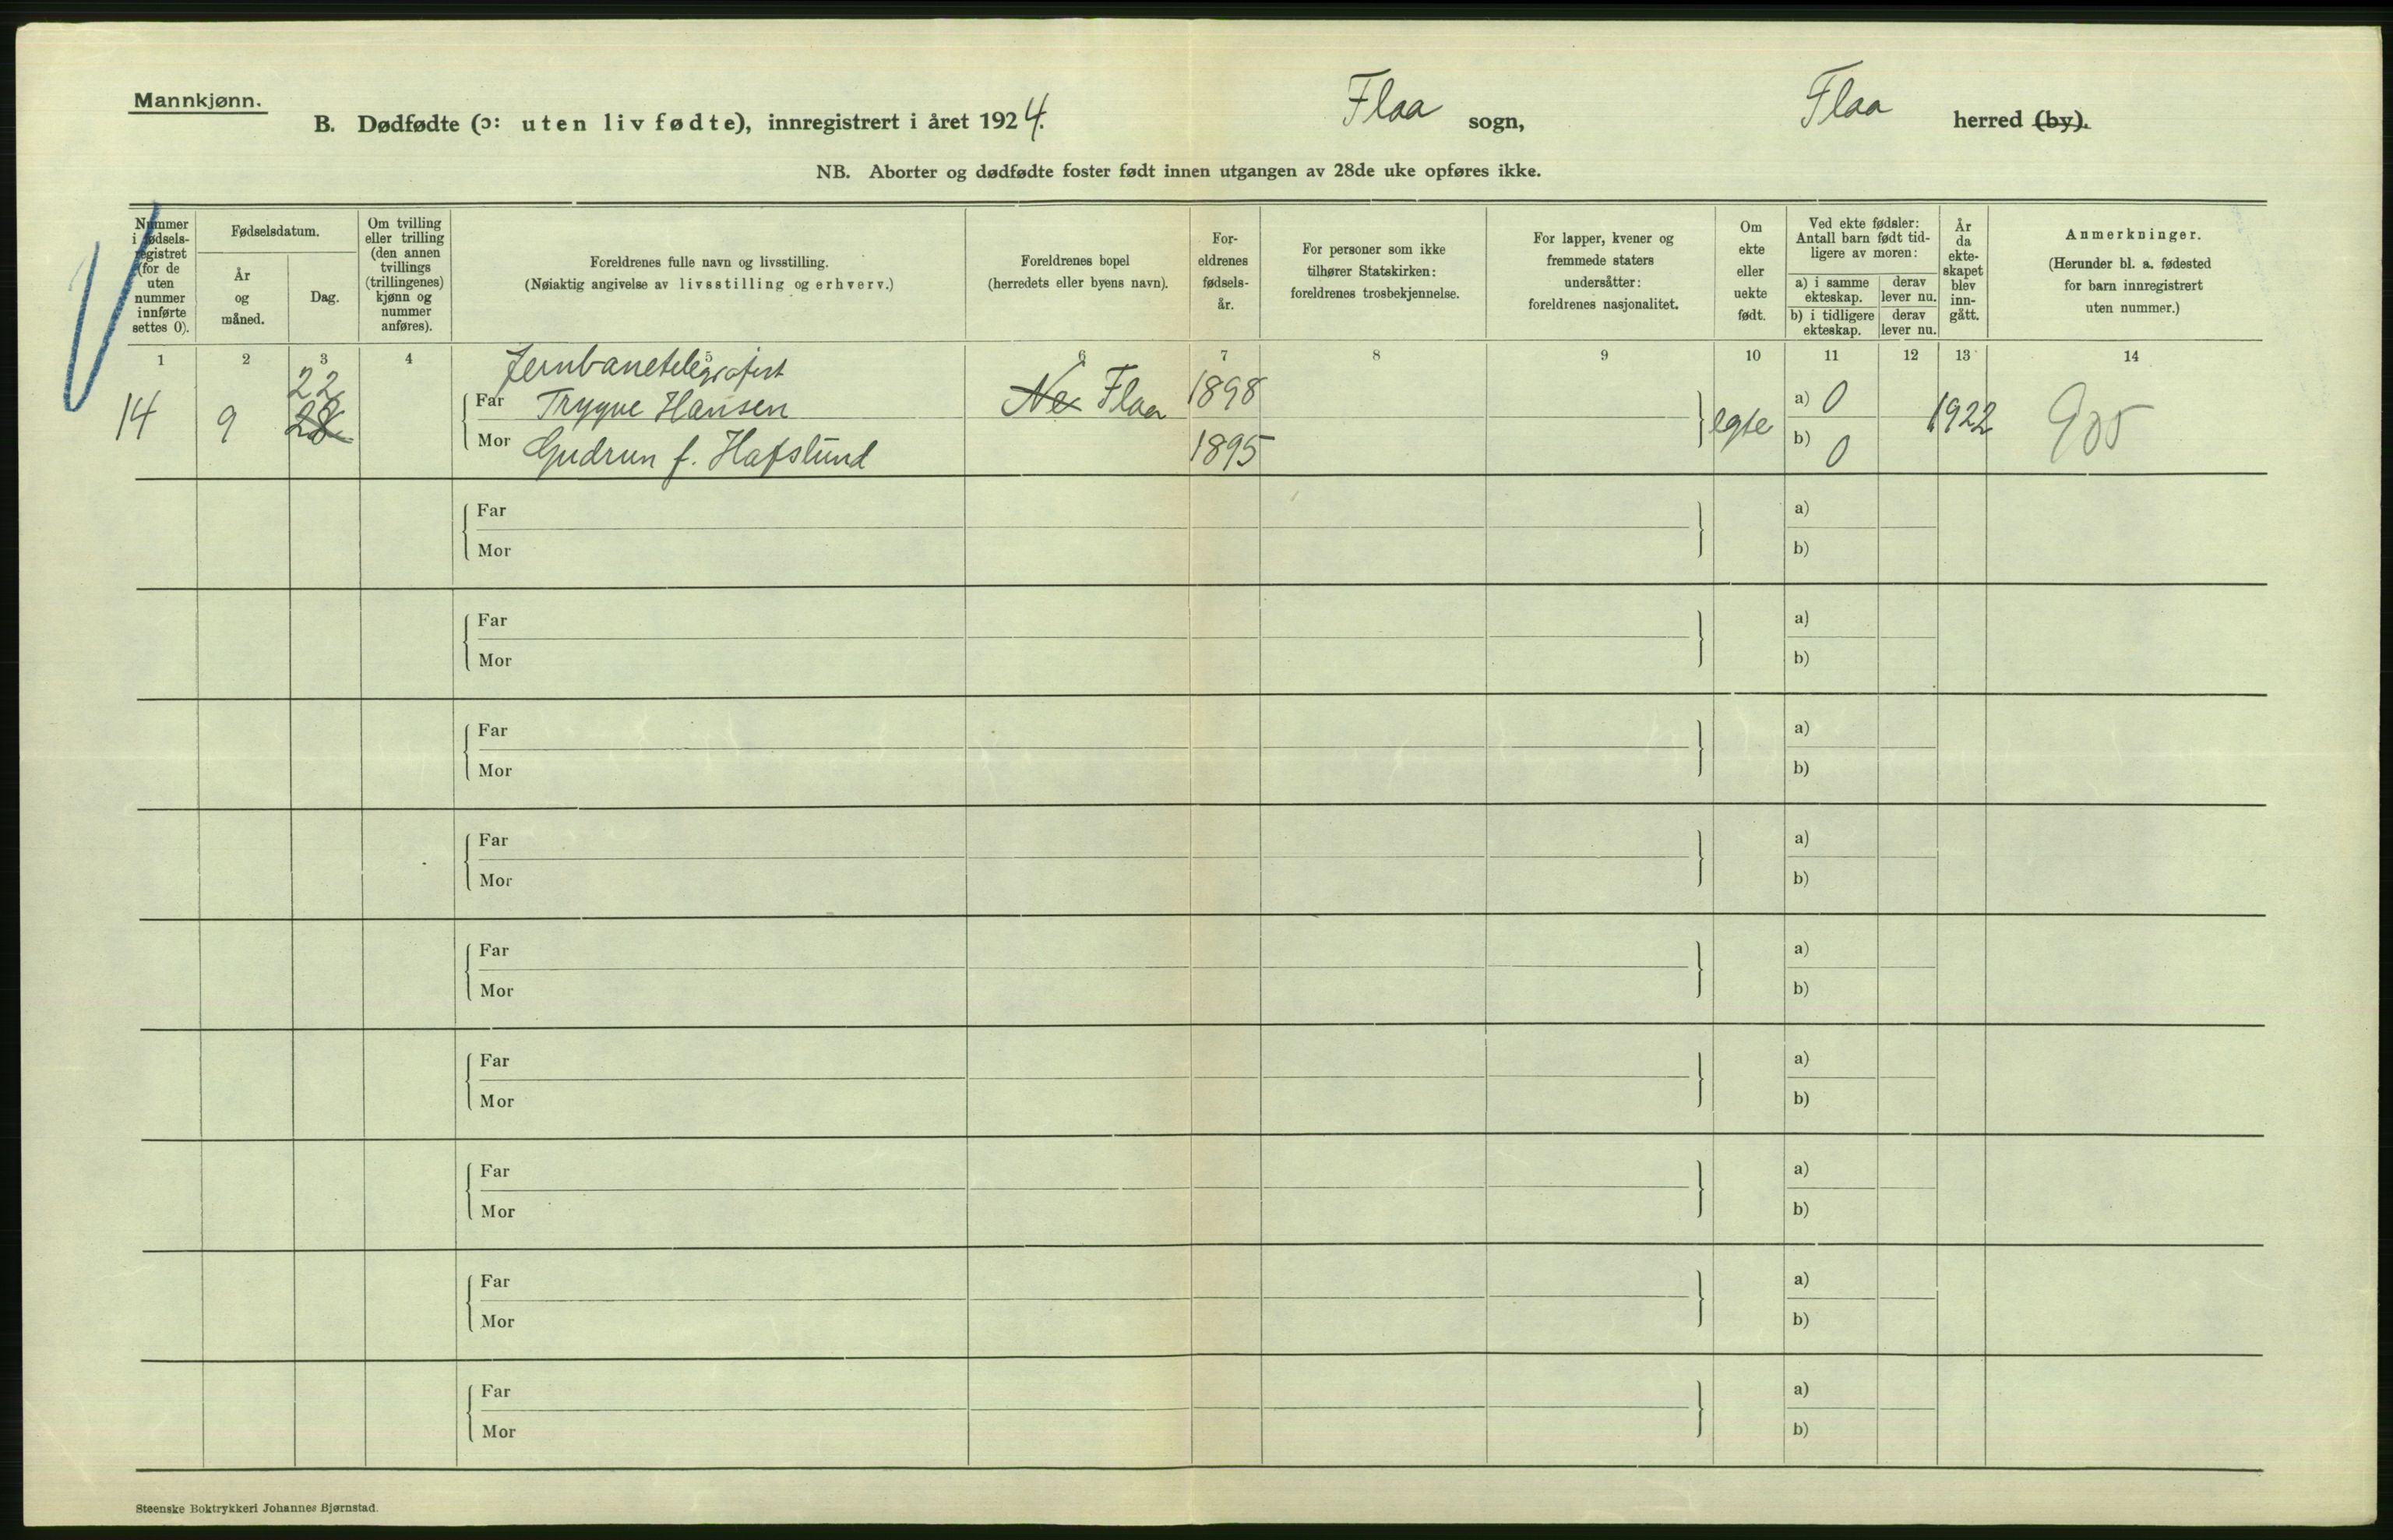 Mannkjønn.
B. Dødfødte (ɔ: uten liv fødte), innregistrert i året 1924. Flaa sogn, Flaa herred (by).
NB. Aborter og dødfødte foster født innen utgangen av 28de uke opføres ikke.
Nummer i fødsels-registret (for de uten nummer innførte settes 0).
Fødselsdatum.
År og måned.
Dag.
Om tvilling eller trilling (den annen tvillings (trillingenes) kjønn og nummer anføres).
Foreldrenes fulle navn og livsstilling.
(Nøiaktig angivelse av livsstilling og erhverv.)
Foreldrenes bopel
(herredets eller byens navn).
For-eldrenes fødsels-år.
For personer som ikke tilhører Statskirken: foreldrenes trosbekjennelse.
For lapper, kvener og fremmede staters undersåtter: foreldrenes nasjonalitet.
Om ekte eller uekte født.
Ved ekte fødsler: Antall barn født tid-ligere av moren:
a) i samme ekteskap. derav lever nu.
b) i tidligere ekteskap. derav lever nu.
År da ekte-skapet blev inn-gått.
Anmerkninger.
(Herunder bl. a. fødested for barn innregistrert uten nummer.)
1 2 3 4 5 6 7 8 9 10 11 12 13 14
Jernbanetelegrafist
22
14 9 28 Far Trygve Hansen Ne Flaa 1898 egte a) 0 1922 905
Mor Gudrun f. Hafslund 1895 b) 0
Far a)
Mor b)
Far a)
Mor b)
Far a)
Mor b)
Far a)
Mor b)
Far a)
Mor b)
Far a)
Mor b)
Far a)
Mor b)
Far a)
Mor b)
Far a)
Mor b)
Steenske Boktrykkeri Johannes Bjørnstad.